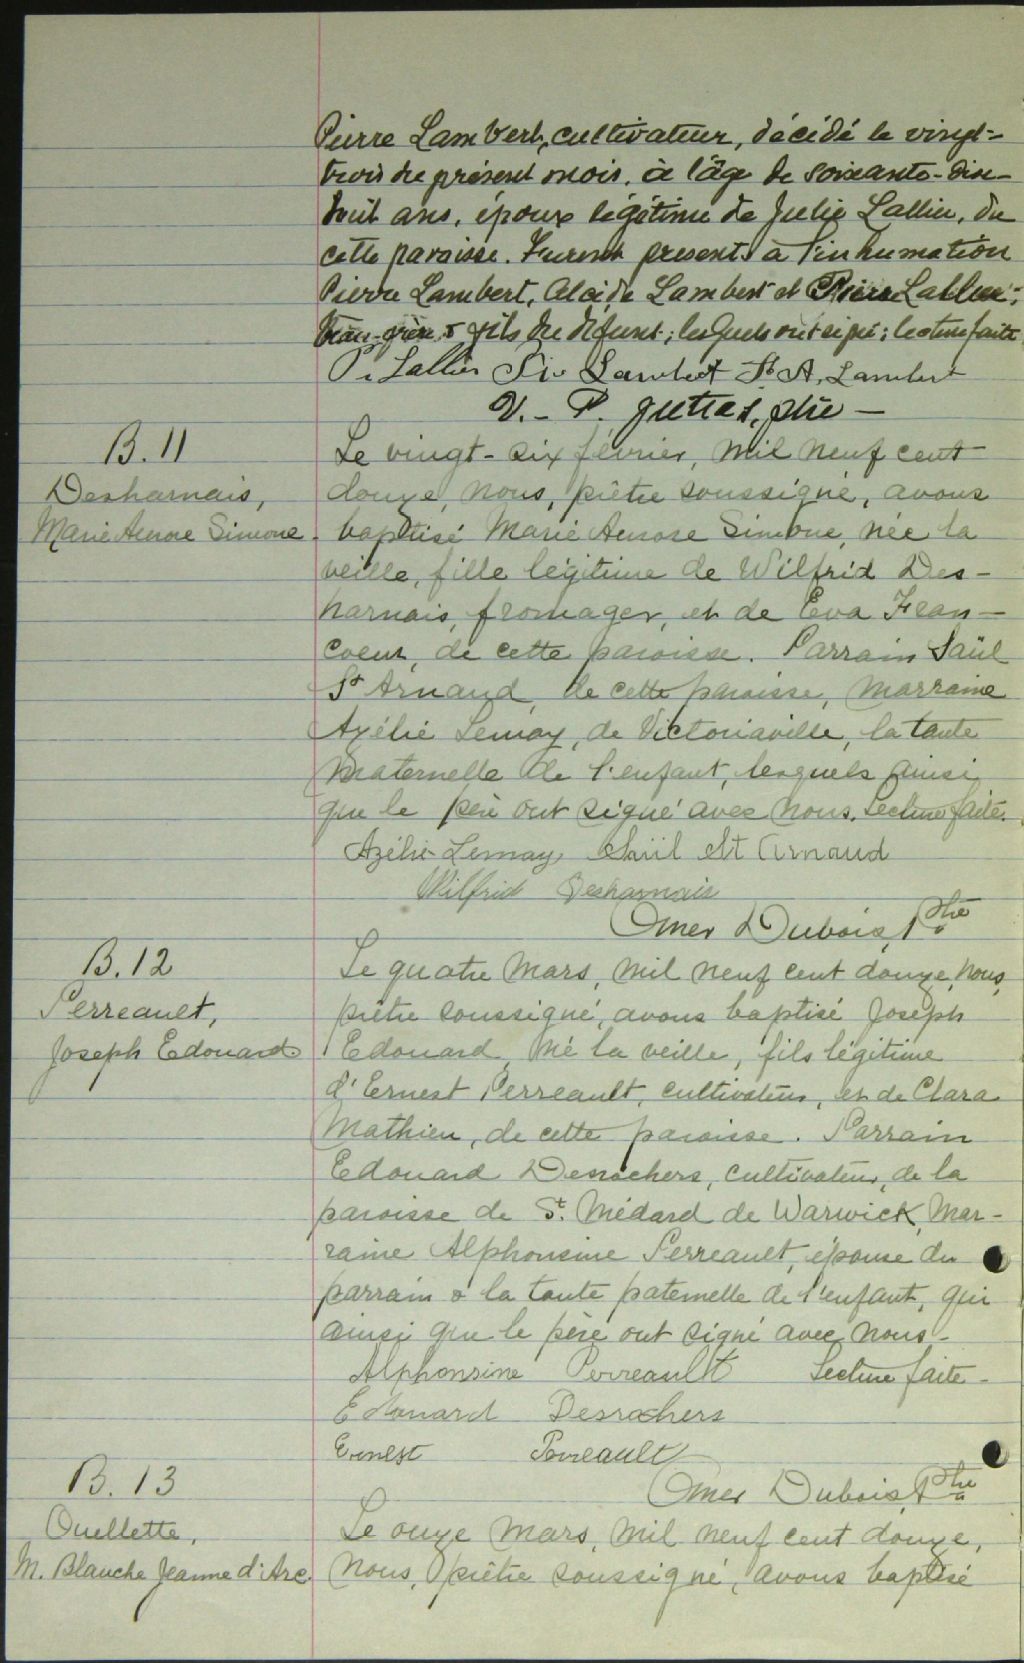 Pierre Lambert, cultivateur, décédé le vingt-
trois du présent mois, à l'âge de soixante-dix-
huit ans, époux légitime de Julie Lallier, de
cette paroisse. Furent présents à l'inhumation
Pierre Lambert, Alcide Lambert et Pierre Lallier;
beau-frère & fils du défunt; lesquels ont signé: lecture faite.
P. Lallier Lambert A. Lambert
V. - P. Jutras, ptre -
B. 11
Desharnais,
Marie Aurore Simone.
Le vingt-six février, mil neuf cent
douze, nous, prêtre soussigné, avons
baptisé Marie Aurore Simone, née la
veille, fille légitime de Wilfrid Des-
harnais, fromager, et de Eva Fran-
coeur, de cette paroisse. Parrain Saül
St Arnaud, de cette paroisse, marraine
Azélie Lemay, de Victoriaville, la tante
maternelle de l'enfant, lesquels ainsi
que le père ont signé avec nous. Lecture faite.
Azélie Lemay Saül St Arnaud
Wilfrid Desharnais
Omer Dubois, Ptre
B. 12
Perreault,
Joseph Edouard
Le quatre mars, mil neuf cent douze, nous,
prêtre soussigné, avons baptisé Joseph
Edouard, né la veille, fils légitime
d'Ernest Perreault, cultivateur, et de Clara
Mathieu, de cette paroisse. Parrain
Edouard Desrochers, cultivateur, de la
paroisse de St. Médard de Warwick, Mar-
raine Alphonsine Perreault, épouse du
parrain & la tante paternelle de l'enfant, qui
ainsi que le père ont signé avec nous -
Alphonsine Perreault Lecture faite -
Edouard Desrochers
Ernest Perreault
Omer Dubois, Ptre
B. 13
Ouellette,
M. Blanche Jeanne d'Arc.
Le onze mars, mil neuf cent douze,
nous, prêtre soussigné, avons baptisé